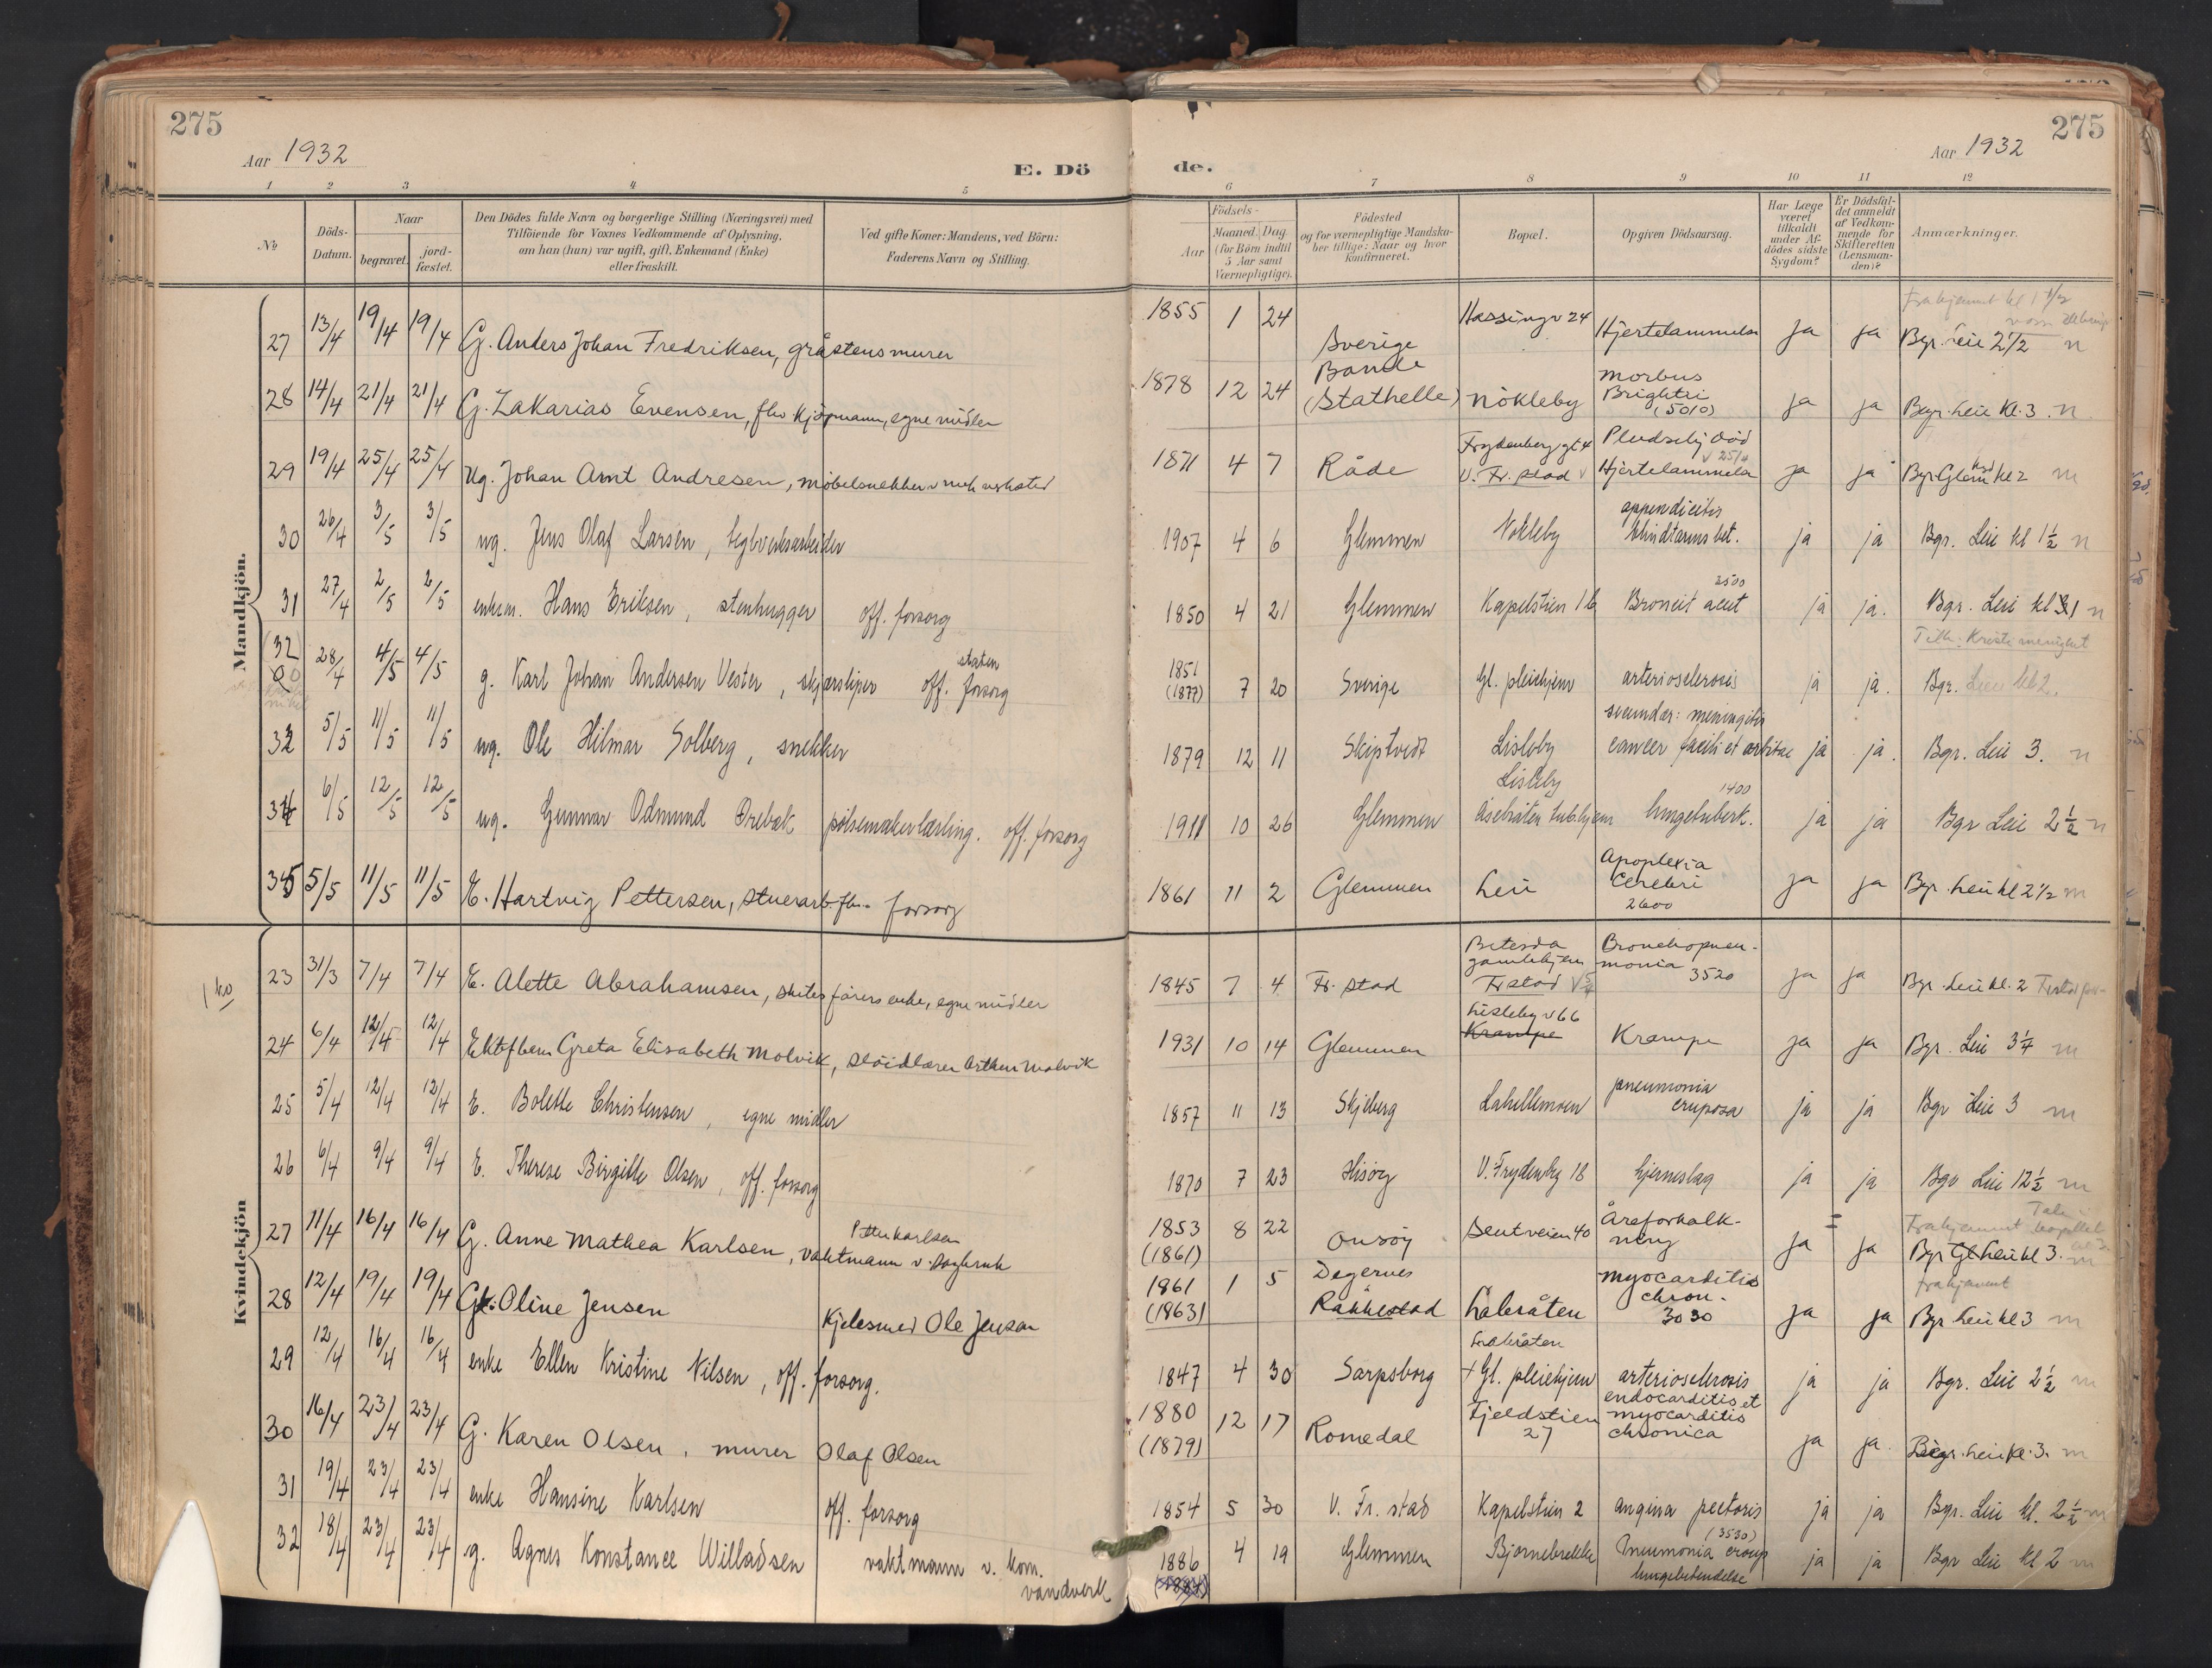 275
Aar 1932
E. Dö
de.
275
Aar 1932
1 2 3 4 5 6 7 8 9 10 11 12
No
Döds-Datum.
Naar
begravet.
jord-fæstet.
Den Dödes fulde Navn og borgerlige Stilling (Næringsvei) med
Tilföiende for Voxnes Vedkommende af Oplysning,
om han (hun) var ugift, gift, Enkemand (Enke)
eller fraskilt.
Ved gifte Koner: Mandens, ved Börn:
Faderens Navn og Stilling.
Födsels-
Aar
Maaned. Dag
(for Börn indtil
5 Aar samt
Værnepligtige).
Födested
og for værnepligtige Mandska-
ber tillige: Naar og hvor
konfirmeret.
Bopæl.
Opgiven Dödsaarsag.
Har Læge
været
tilkaldt
under Af-
dödes sidste
Sygdom?
Er Dödsfal-
det anmeldt
af Vedkom-
mende for
Skifteretten
(Lensman-
den)?
Anmærkninger.
Mandkjön.
27 13/4 19/4 19/4 G. Anders Johan Fredriksen, gråstensmurer 1855 1 24 Sverige Hassingv 24 Hjertelammelse ja ja Frahjemmet kl 1 1/2 Bgr. Leie 2 1/2 n
28 14/4 21/4 21/4 G. Zakarias Evensen, fhv kjøpmann, egne midler 1878 12 24 Bamle (Stathelle) Nökleby morbus Brightii (5010) ja ja Begr. Leie Kl. 3. n
29 19/4 25/4 25/4 Ug. Johan Arnt Andresen, möbelsnekker v mek verksted 1871 4 7 Råde Frydenberg gt 4 V. Fr. stad Pludselig död Hjertelammelse ja ja Bgr Glem kl 2 m
30 26/4 3/5 3/5 ug. Jens Olaf Larsen, teglverksarbeider 1907 4 6 Glemmen Nökleby appendicitis blindtarmsbet. ja ja Bgr. Leie kl 1 1/2 n
31 27/4 2/5 2/5 enkem. Hans Eriksen, stenhugger off. forsorg 1850 4 21 Glemmen Kapelstien 16 2500 Broncit acut ja ja. Bgr. Leie kl 1 n
(32 28/4 4/5 4/5 g. Karl Johan Andersen Vester, skjærsliper off. forsorg staten 1851 (1877) 7 20 Sverige Gl. pleiehjem arteriosclerosis ja ja. Tilh. Kristi menighet Bgr. Leie kl 2.
32 5/5 11/5 11/5 ug. Ole Hilmar Solberg, snekker 1879 12 11 Skiptvedt Lisleby secundær: meningitis cancer faciei et orbitae ja ja. Bgr. Leie 3. n
34 6/5 12/5 12/5 ug. Gunnar Odmund Ørebæk pølsemakerlærling. off. forsorg 1911 10 26 Glemmen Lisleby Åsebråten tub.hjem 1400 lungetuberk. ja ja Bgr Leie 2 1/2 n
35 5/5 11/5 11/5 E. Hartvig Pettersen, stuerarb. fhv. forsorg 1861 11 2 Glemmen Leie Apoplexia Cerebri 2600 ja ja Bgr. Leie kl 2 1/2 m
Kvindekjön
23 31/3 7/4 7/4 E. Alette Abrahamsen, skitesförers enke, egne midler 1845 7 4 Fr. stad Betesda gamlehjem Fr stad Bronchopneu-monia 3520 ja ja Bgr. Leie kl. 2
24 6/4 12/4 12/4 Ektef barn Greta Elisabeth Molvik, slöidlærer Arthur Molvik 1931 10 14 Glemmen Lisleby v 66 Krampe Krampe ja ja Bgr. Leie 3 1/4 m
25 5/4 12/4 12/4 E. Bolette Christensen, egne midler 1857 11 13 Skjeberg Lahellemoen pneumonia cruposa ja ja Bgr Leie 3 m
26 6/4 9/4 9/4 E. Therese Birgitte Olsen, off. forsorg 1870 7 23 Hisøy V. Frydenbg 18 hjerneslag ja ja Bgr Leie 12 1/2 m
27 11/4 16/4 16/4 G. Anne Mathea Karlsen, Petter Karlsen vaktmann v. 1853 (1861) 8 22 Onsöy Leutveien 40 Åreforkalk-ning ja ja Frahjemmet Bgr Gl Leie kl 3. m
28 12/4 19/4 19/4 G. Oline Jensen Kjelesmed Ole Jensen 1861 (1863) 1 5 Degernes Rakkestad Labråten myocarditis chron. 3030 ja ja frahjemmet Bgr Leie kl 3 m
29 12/4 16/4 16/4 enke Ellen Kristine Nilsen, off. forsorg. 1847 4 30 Sarpsborg Labråten + Gl. pleiehjem arteriosclerosis ja ja Bgr. Leie 2 1/2 m
30 16/4 23/4 23/4 G. Karen Olsen, murer Olaf Olsen 1880 (1879) 12 17 Romedal Fjeldstien 27 endocarditis et myocarditis chronica ja ja. Begr. Leie kl. 3. m
31 19/4 23/4 23/4 enke Hansine Karlsen off. forsorg 1854 5 30 V. Fr. stad Kapelstien 2 angina pectoris ja ja Bgr. Leie kl. 2 1/2 m
32 18/4 23/4 23/4 g. Agnes Konstance Willadsen vaktmann v. kom. vandverk 1886 4 19 Glemmen Bjørnebrekke (3530) Pneumonia croup lungebetendelse ja ja Bgr Leie kl 2 m